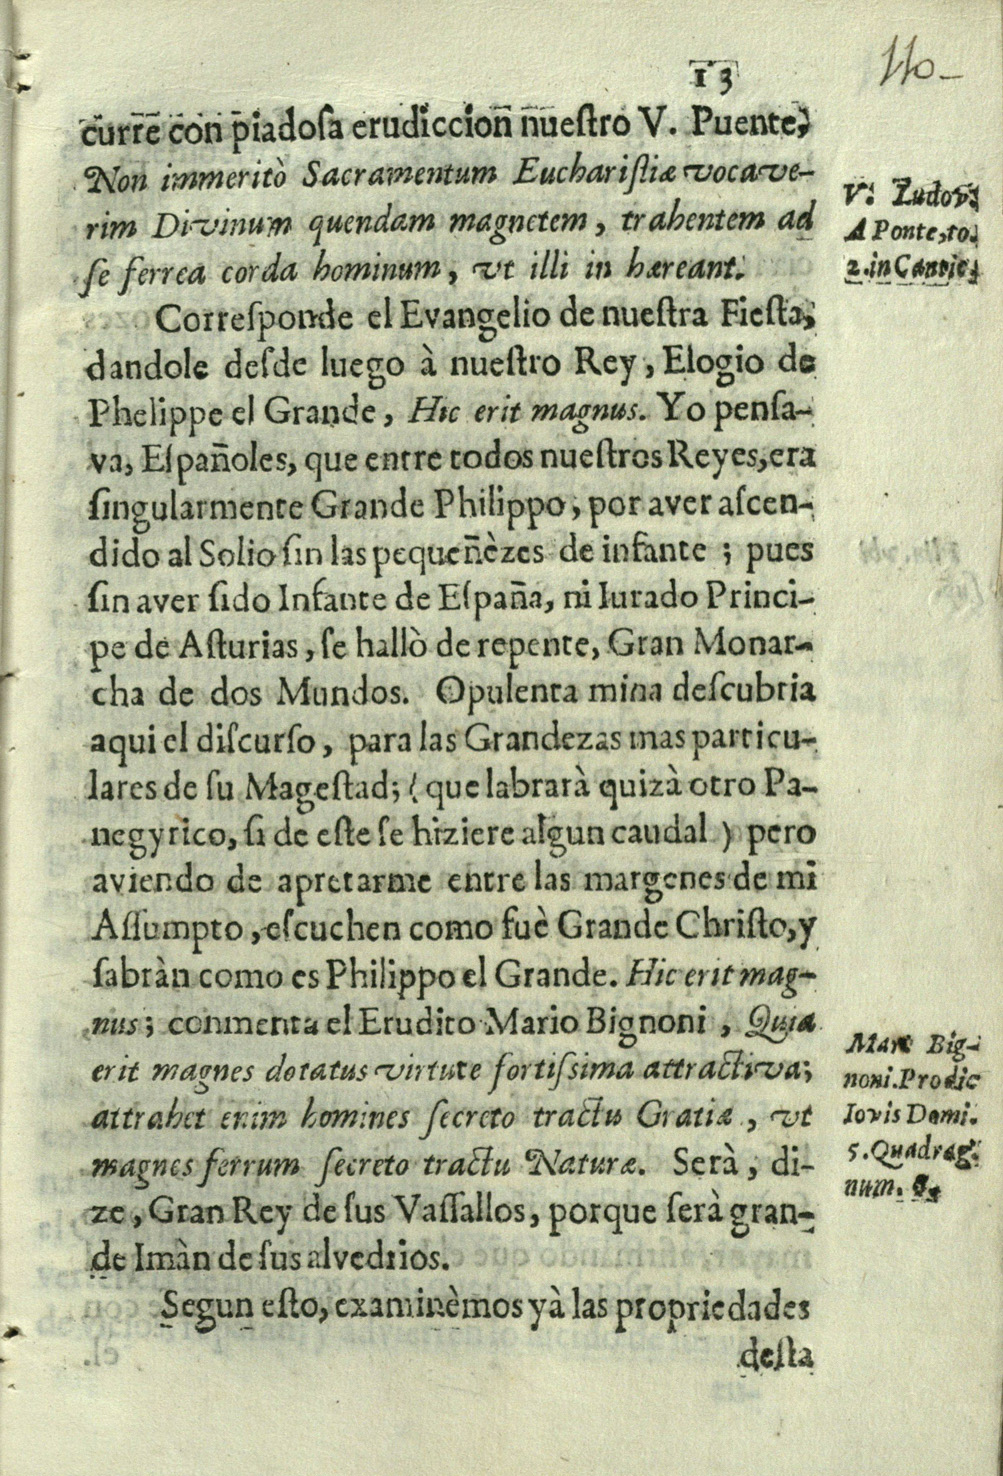 13
110
curre con piadosa erudiccion nuestro V. Puente,
Non immeritò Sacramentum Euchariſtiæ vocave-
rim Divinum quendam magnetem, trahentem ad
ſe ferrea corda hominum, vt illi in hæreant.
V. Ludov.
A Ponte, to.
2. in Cantic.
Correſponde el Evangelio de nueſtra Fieſta,
dandole deſde luego à nueſtro Rey, Elogio de
Phelippe el Grande, Hic erit magnus. Yo penſa-
va, Eſpañoles, que entre todos nueſtros Reyes, era
ſingularmente Grande Philippo, por aver aſcen-
dido al Solio ſin las pequeñèzes de infante ; pues
ſin aver ſido Infante de Eſpaña, ni Iurado Princi-
pe de Aſturias, ſe hallò de repente, Gran Monar-
cha de dos Mundos. Opulenta mina deſcubria
aqui el diſcurſo, para las Grandezas mas particu-
lares de ſu Mageſtad; ( que labrarà quizà otro Pa-
negyrico, ſi de eſte ſe hiziere algun caudal ) pero
aviendo de apretarme entre las margenes de mi
Aſſumpto, eſcuchen como fuè Grande Chriſto, y
ſabràn como es Philippo el Grande. Hic erit mag-
nus; conmenta el Erudito Mario Bignoni, Quia
erit magnes dotatus virtute fortiſsima attractiva;
attrahet enim homines ſecreto tractu Gratiæ, vt
magnes ferrum ſecreto tractu Naturæ. Serà, di-
ze, Gran Rey de ſus Vaſſallos, porque ſerà gran-
de Imàn de ſus alvedrios.
Mar. Big-
noni. Prodic
Iovis Domi.
5. Quadrag.
num.
Segun eſto, examinèmos yà las propriedades
deſta